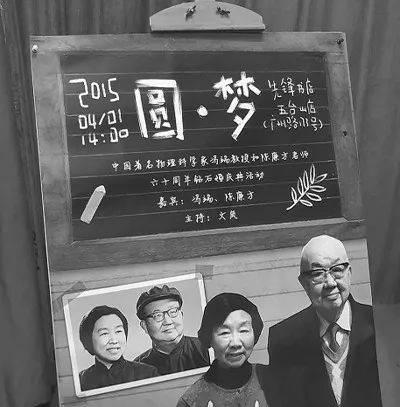 2015
04/01
14:00
圆·梦
先锋书店
五台山店
(广州路173号)
中国著名物理科学家冯端教授和陈廉方老师
六十周年钻石婚庆典活动
嘉宾：冯端、陈廉方
主持：文泉